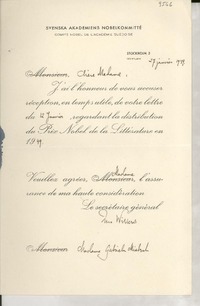 9566
SVENSKA AKADEMIENS NOBELKOMMITTÉ
COMITÉ NOBEL DE L'ACADÉMIE SUÉDOISE
STOCKHOLM 2
27 janvier 1949
Monsieur, Chère Madame,
J'ai l'honneur de vous accuser
réception, en temps utile, de votre lettre
du 12 janvier, regardant la distribution
du Prix Nobel de la Littérature en
1949.
Madame
Veuillez agréer, Monsieur, l'assu-
rance de ma haute considération
Le secrétaire général
Monsieur Madame Gabriela Mistral